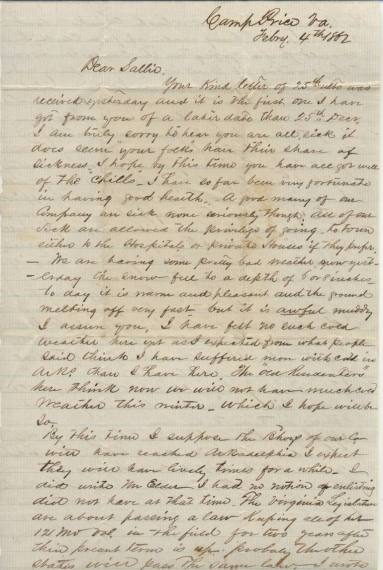 Camp Price Va.
Febry. 4th 1862
Dear Sallie.
Your Kind letter of 25th ulto was
received yesterday and it is the first one I have
got from you of a later date than 25th Decr.
I am truly sorry to hear you are all sick it
does seem your folks have their share of
sickness, I hope by this time you have all got well
of the "Chills". I have so far been very fortunate
in having good health. A good many of our
Company are sick none seriously though. All of our
sick are allowed the privilege of going to town
either to the Hospitals or private houses if they prefer.
– We are having some pretty bad weather now yest-
-erday the snow fell to a depth of 5 or 6 inches
to day it is warm and pleasant and the ground
melting off very fast but it is awful muddy
I assure you, I have felt no such cold
weather here yet as I expected from what people
said think I have suffered more with cold in
Arks than I have here, The old
here think now we will not have much cold
weather this winter – which I hope will be
So,
By this time I suppose the of our Co
will have reached Arkadelphia I expect
they will have lively times for a while – I
did write Mr I had no notion of enlisting
did not have at that time. The Virginia Legislature
are about passing a law keeping all of her
12 Mo Vol. in the field for two years after
their present term is up. Probably the other
States will pass the same law I wrote